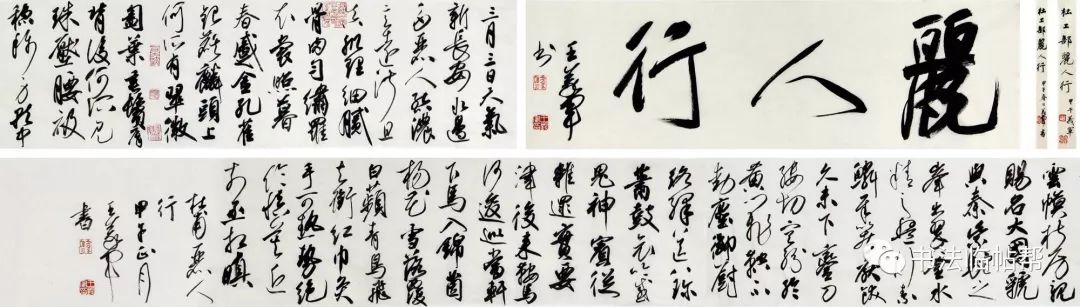 杜工部麗人行
杜工部麗人行
麗人行
三月三日天氣
新長安水邊
多麗人態濃
意遠淑且
真肌理細膩
骨肉勻繡羅
衣裳照暮
春蹙金孔雀
銀麒麟頭上
何所有翠微
㔩葉垂鬢唇
背後何所見
珠壓腰衱
穩稱身就中
雲幕椒房親
賜名大國虢
與秦紫駝之
峯出翠釜水
精之盤行素
鱗犀箸厭飫
久未下鸞刀
縷切空紛綸
黃門飛鞚不
動塵御廚
絡繹送八珍
簫鼓哀吟感
鬼神賓從
雜遝實要
津後來鞍馬
何逡巡當軒
下馬入錦茵
楊花雪落覆
白蘋青鳥飛
去銜紅巾炙
手可熱勢絕
倫慎莫近
前丞相嗔
杜甫麗人
行
甲子正月
書
书法临帖帮